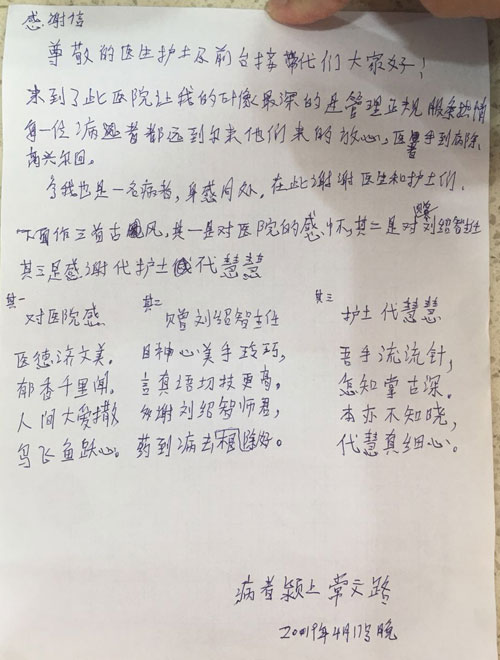 感谢信
尊敬的医生护士及前台接待们大家好！
来到了此医院让我的印像最深的是管理正规服务热情
每一位病患者都远到而来他们来的放心，医手到病除
高兴而回。
今我也是一名病者，身感同处，在此谢谢医生和护士们，
下面作三首古风，其一是对医院的感怀，其二是对刘绍智主任
其三是感谢代护士代慧慧
其一
对医院感
医德济文美。
郁香千里闻。
人间大爱撒
鸟飞鱼跃心。
其二
赠刘绍智主任
目神心美手玲巧，
言真语切技更高。
多谢刘绍智师君，
药到病去根除好。
其三
护士代慧慧
吾手流流针，
怎知掌古深。
本亦不知晓，
代慧真细心。
病者颍上 常文路
2019年4月17号晚